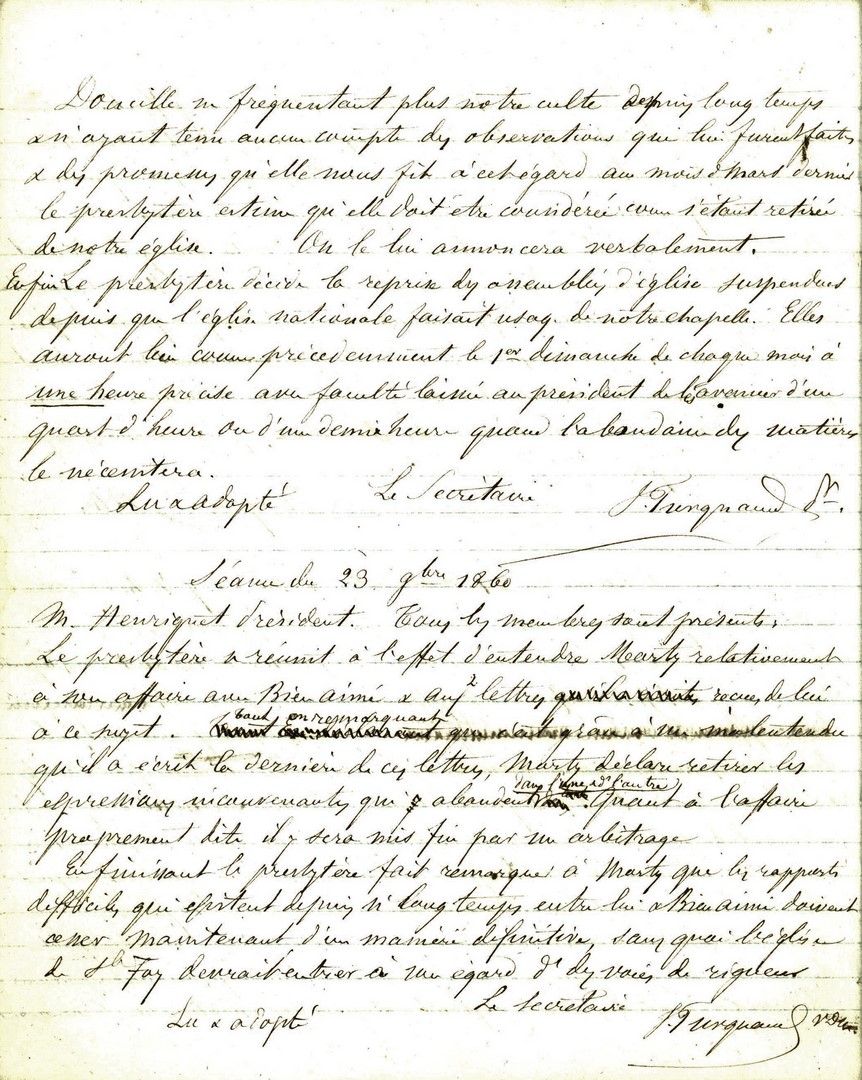 Doucille ne fréquentant plus notre culte depuis long temps
& n'ayant tenu aucun compte des observations qui lui furent faites
& des promesses qu'elle nous fit à cet égard au mois d Mars dernier
le presbytère estime qu'elle doit être considérée comme s'étant retirée
de notre église. On le lui annoncera verbalement.
Enfin Le presbytère décide la reprise des assemblées d'église suspendues
depuis que l'église nationale faisait usage de notre chapelle. Elles
auront lieu comme précédemment le 1er dimanche de chaque mois à
une heure précise avec faculté laissée au président de les avancer d'un
quart d'heure ou d'une demie heure quand l'abondance des matières
le nécessitera.
Lu & adopté Le Secrétaire J. Turquand
Séance du 23 9bre 1860
M. Henriquet Président. Tous les membres sont présents.
Le presbytère se réunit à l'effet d'entendre Marty relativement
à son affaire avec Bien aimé & aux 2 lettres reçues de lui
à ce sujet. tout en remarquant que c'est grâce à un malentendu
qu'il a écrit la dernière de ces lettres, Marty déclare retirer les
expressions inconvenantes qui abondent dans l'une & d l'autre. Quant à l'affaire
proprement dite il y sera mis fin par un arbitrage
En finissant le presbytère fait remarquer à Marty que les rapports
difficiles qui existent depuis si long temps entre lui & Bien aimé doivent
cesser maintenant d'une manière définitive, sans quoi l'église
de Ste Foy devrait entrer à son égard ds des voies de rigueur
Le secretaire
Lu & adopté J. Turquand